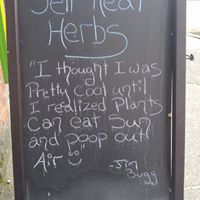 Self Heal
Herbs
"I thought I was
Pretty Cool until
I realized Plants
Can eat Sun
and poop out
Air ☺"
-Jim
Bugg